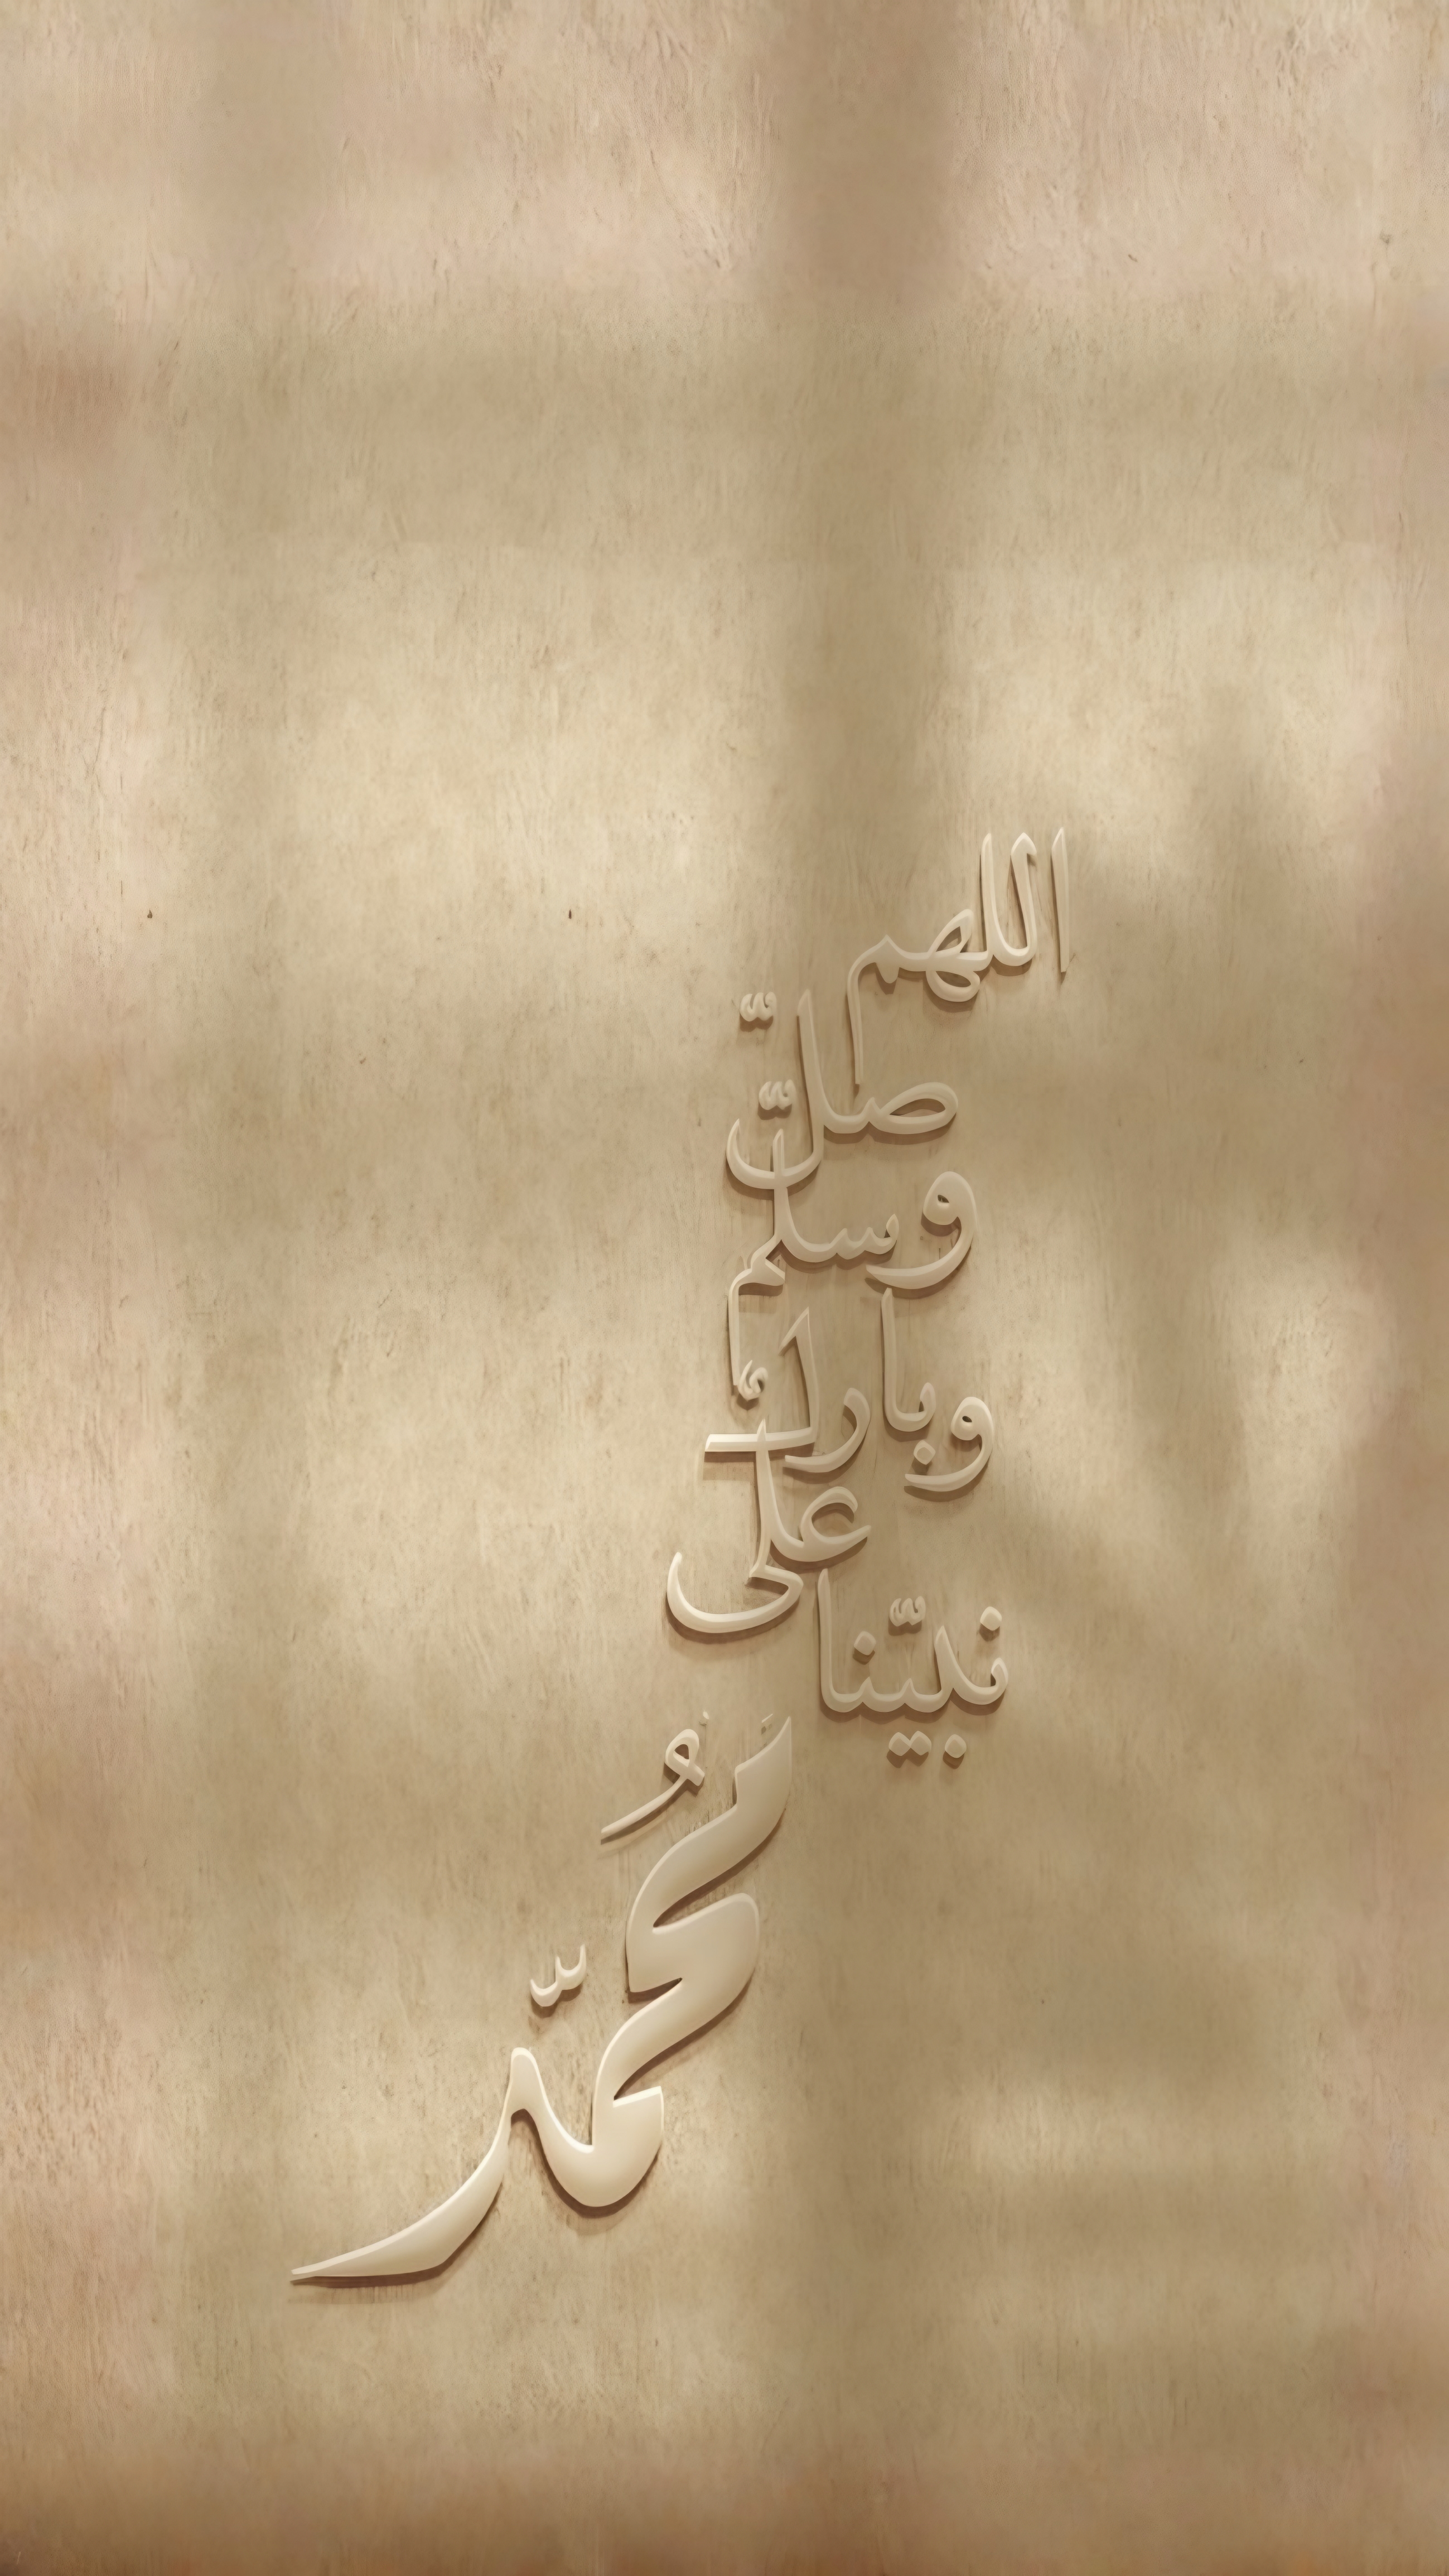 اللهم
صلّ
وسلّم
وبارك
على
نبيّنا
مُحمّد